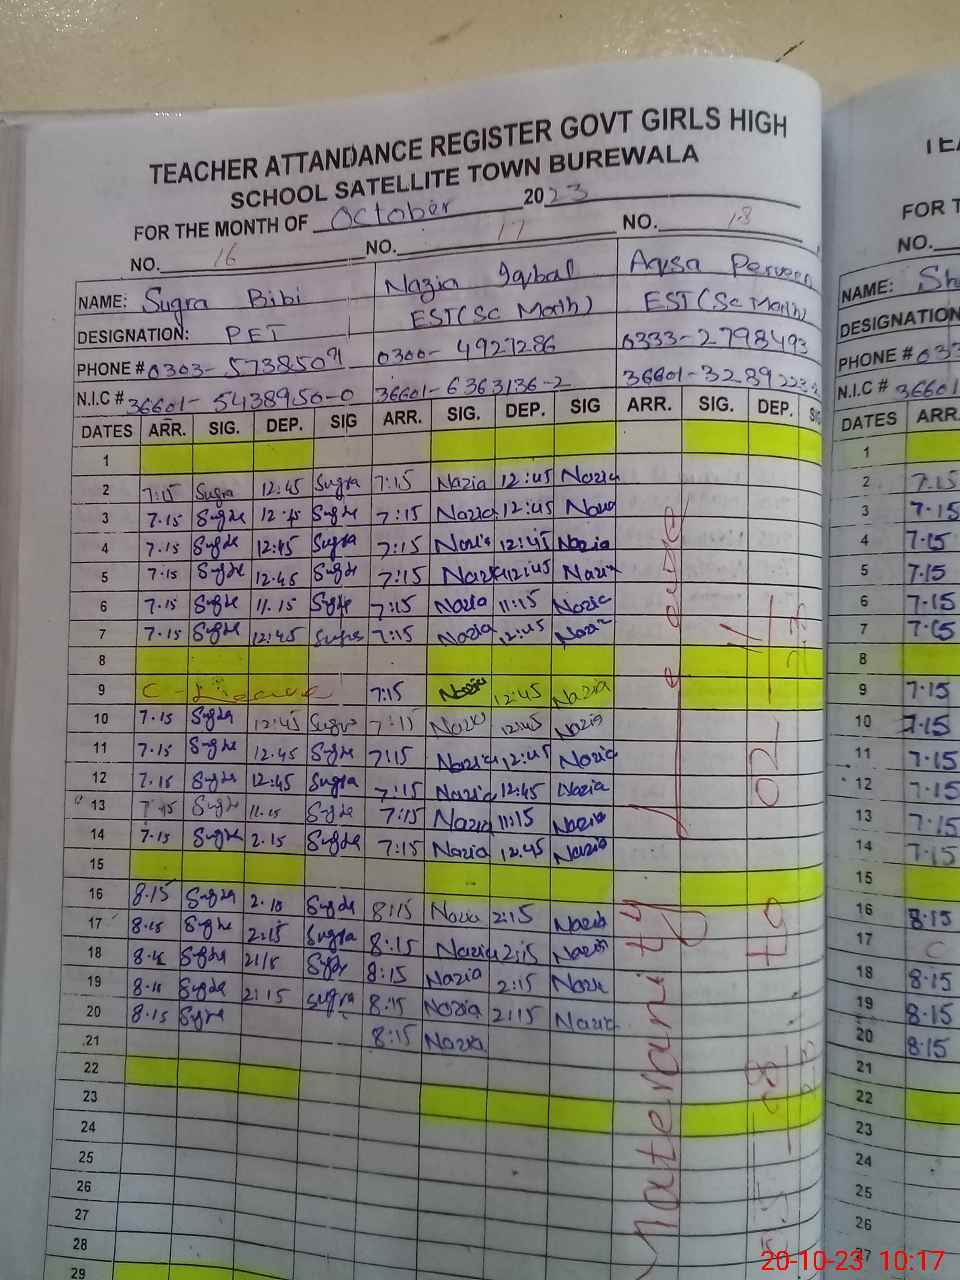 TEACHER ATTANDANCE REGISTER GOVT GIRLS HIGH
SCHOOL SATELLITE TOWN BUREWALA
FOR THE MONTH OF October 2023
NO. 16 NO. 17 NO. 18
NAME: Sugra Bibi Nazia Iqbal Aqsa Perveen
DESIGNATION: PET EST(Sc Math) EST(Sc Math)
PHONE # 0303-5738509 0300-4927286 0333-2798493
N.I.C # 36601-5438950-0 36601-6363136-2 36601-3289
DATES ARR. SIG. DEP. SIG ARR. SIG. DEP. SIG ARR. SIG. DEP.
1
2 7:15 Sugra 12:45 Sugra 7:15 Nazia 12:45 Nazia
3 7.15 Sughe 12:45 Sughe 7:15 Nazia 12:45
4 7.15 Sughe 12:45 Sugra 7:15 12:45 Nazia
5 7.15 Sughe 12.45 Sughe 7:15 12:45
6 7.15 Sughe 11.15 7:15 Nazia 11:15 Nazia
7 7.15 Sughe 12:45 7:15 Nazia 12:45
8
9 C-Leave 7:15 Nazia 12:45 Nazia
10 7.15 Sughe 12:45 Sugra 7:15 12:45 Nazia
11 7.15 Sughe 12.45 Sughe 7:15 Nazia 12:45 Nazia
12 7.15 Sughe 12:45 Sugra 7:15 Nazia 12:45 Nazia
13 Sughe 11.15 Sughe 7:15 Nazia 11:15 Nazia
14 7.15 Sughe 2.15 Sughe 7:15 Nazia 12.45 Nazia
15
16 8.15 Sughe Sughe 8:15 2:15 Nazia
17 8.15 Sughe 2:15 Sugra 8:15 Nazia 2:15 Nazia
18 Sughe 2:15 8:15 Nazia 2:15
19 Sughe 2:15 Sugra 8:15 Nazia 2:15 Nazia
20 8.15 8:15 Nazia
21
22
23
24
25
26
27
28
29
Maternity Leave
02
to
FOR T
NO.
NAME: Sh
DESIGNATION
PHONE # 033
N.I.C # 36601
DATES ARR.
1
2 7.15
3 7.15
4 7.15
5 7.15
6 7.15
7 7.15
8
9 7.15
10 7.15
11 7.15
12 7.15
13 7.15
14 7.15
15
16 8.15
17 C
18 8.15
19 8.15
20 8.15
21
22
23
24
25
26
27
20-10-23 10:17